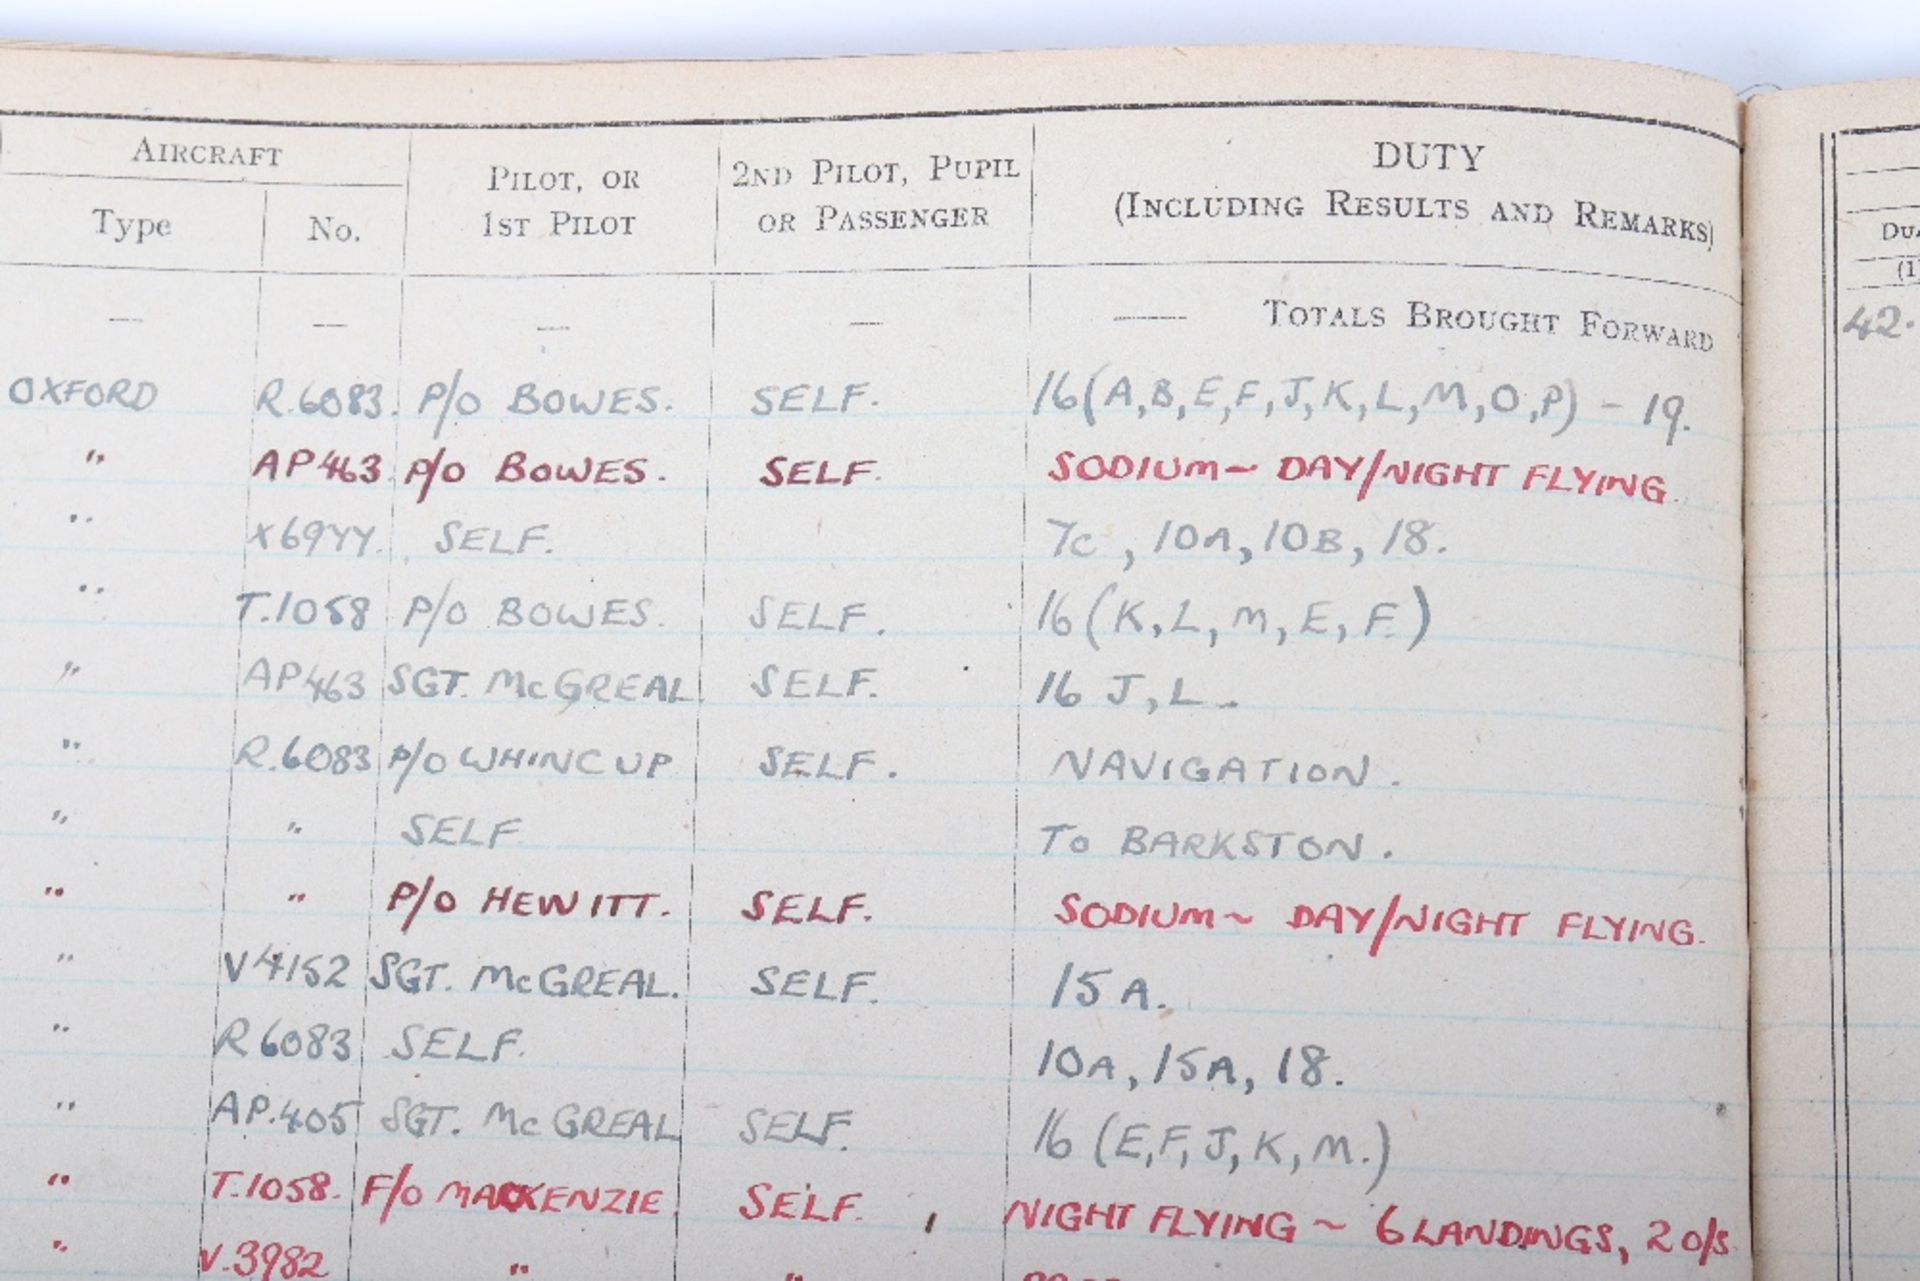 AIRCRAFT PILOT, OR 2ND PILOT, PUPIL DUTY
Type No. 1ST PILOT OR PASSENGER (INCLUDING RESULTS AND REMARKS)
(1
— — — — —— TOTALS BROUGHT FORWARD 42.
OXFORD R.6083. P/O BOWES. SELF. 16(A,B,E,F,J,K,L,M,O,P) - 19.
" AP463 P/O BOWES. SELF. SODIUM ~ DAY/NIGHT FLYING.
" X69YY. SELF. 7C, 10A, 10B, 18.
" T.1058 P/O BOWES. SELF. 16 (K, L, M, E, F.)
" AP463 SGT. McGREAL SELF. 16 J, L.
" R.6083 P/O WHINCUP SELF. NAVIGATION.
" " SELF To BARKSTON.
" " P/O HEWITT. SELF. SODIUM ~ DAY/NIGHT FLYING.
" V4152 SGT. McGREAL. SELF. 15 A.
" R6083 SELF. 10A, 15A, 18.
" AP.405 SGT. McGREAL SELF. 16 (E,F,J,K,M.)
" T.1058. F/O MACKENZIE SELF. NIGHT FLYING ~ 6 LANDINGS, 2 O/S
" V.3982 " "